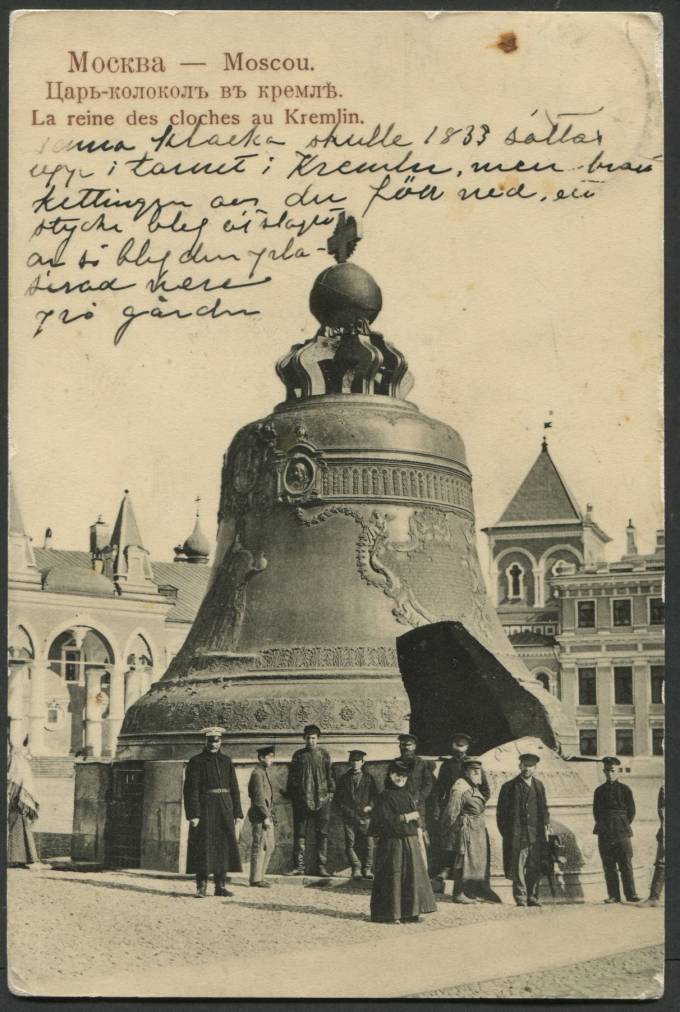 Москва — Moscou.
Царь-колоколъ въ кремлѣ.
La reine des cloches au Kremlin.
Denna klocka skulle 1833 sättas
upp i tornet i Kremln, men brast
kettingen och den föll ned, ett
stycke blef utslaget
och så blef den pla-
serad nere
på gården